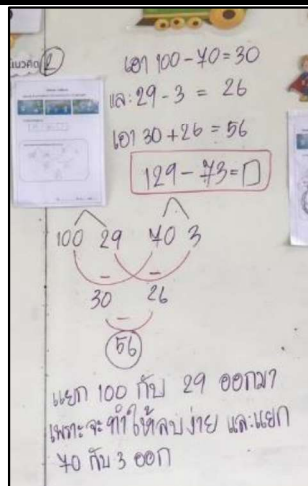 แนวคิด 2
เอา 100 - 70 = 30
และ 29 - 3 = 26
เอา 30 + 26 = 56
129 - 73 = □
100 29 70 3
- -
30 26
-
56
แยก 100 กับ 29 ออกมา
เพราะจะทำให้ลบง่าย และแยก
70 กับ 3 ออก